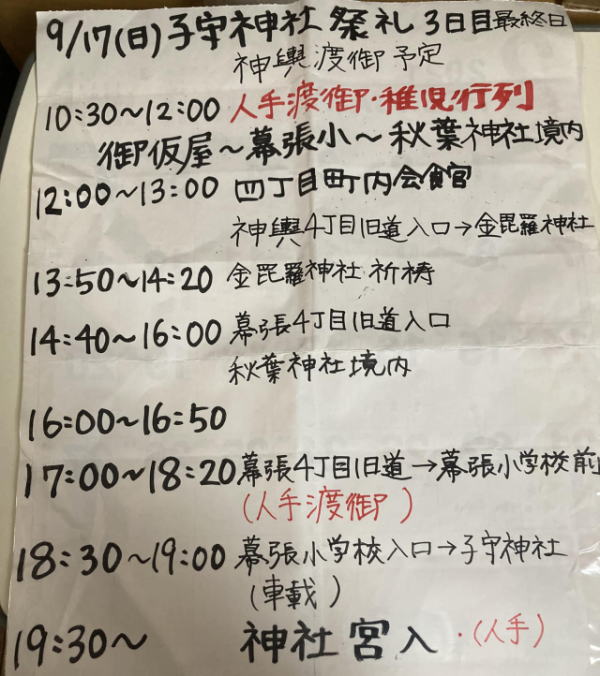 9/17(日)子守神社 祭礼 3日目最終日
神輿渡御予定
10:30～12:00 人手渡御・稚児行列
御仮屋～幕張小～秋葉神社境内
12:00～13:00 四丁目町内会食宮
神輿4丁目旧道入口→金毘羅神社
13:50～14:20 金毘羅神社 祈祷
14:40～16:00 幕張4丁目旧道入口
秋葉神社境内
16:00～16:50
17:00～18:20 幕張4丁目旧道→幕張小学校前
(人手渡御)
18:30～19:00 幕張小学校入口→子守神社
(車載)
19:30～ 神社宮入・(人手)